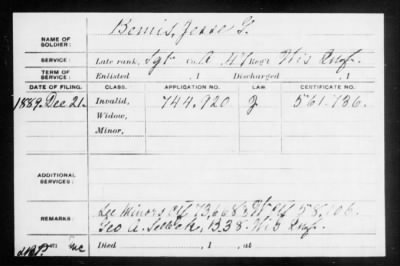 NAME OF SOLDIER: Bemis, Jesse G.
SERVICE: Late rank, Sgt Co. A 47 Regt Wis Inf.
TERM OF SERVICE: Enlisted , 1 Discharged , 1
DATE OF FILING. CLASS. APPLICATION NO. LAW. CERTIFICATE NO.
1889, Dec 21. Invalid, 744.920 561.736.
Widow,
Minor,
ADDITIONAL SERVICES:
REMARKS: See Minors
Geo A. B. 38. Wis Inf.
Died , 1 , at